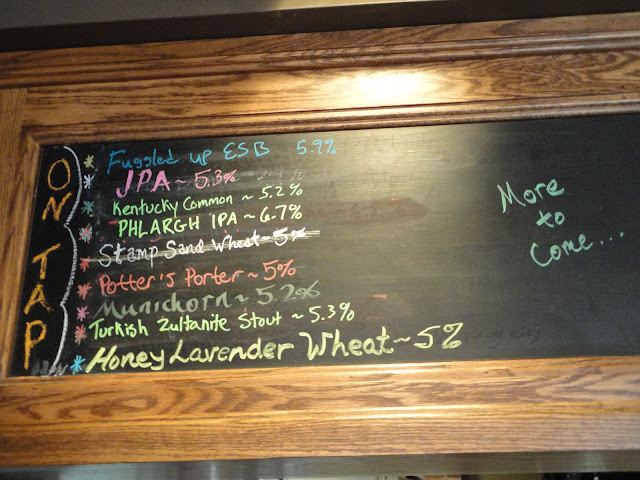 ON TAP
Fuggled up ESB 5.9%
JPA ~ 5.3%
Kentucky Common ~ 5.2%
PHLARGH IPA ~ 6.7%
Stamp Sand Wheat ~ 5%
Potter's Porter ~ 5%
Munichorn ~ 5.2%
Turkish Zultanite Stout ~ 5.3%
Honey Lavender Wheat ~ 5%
More
to
Come...